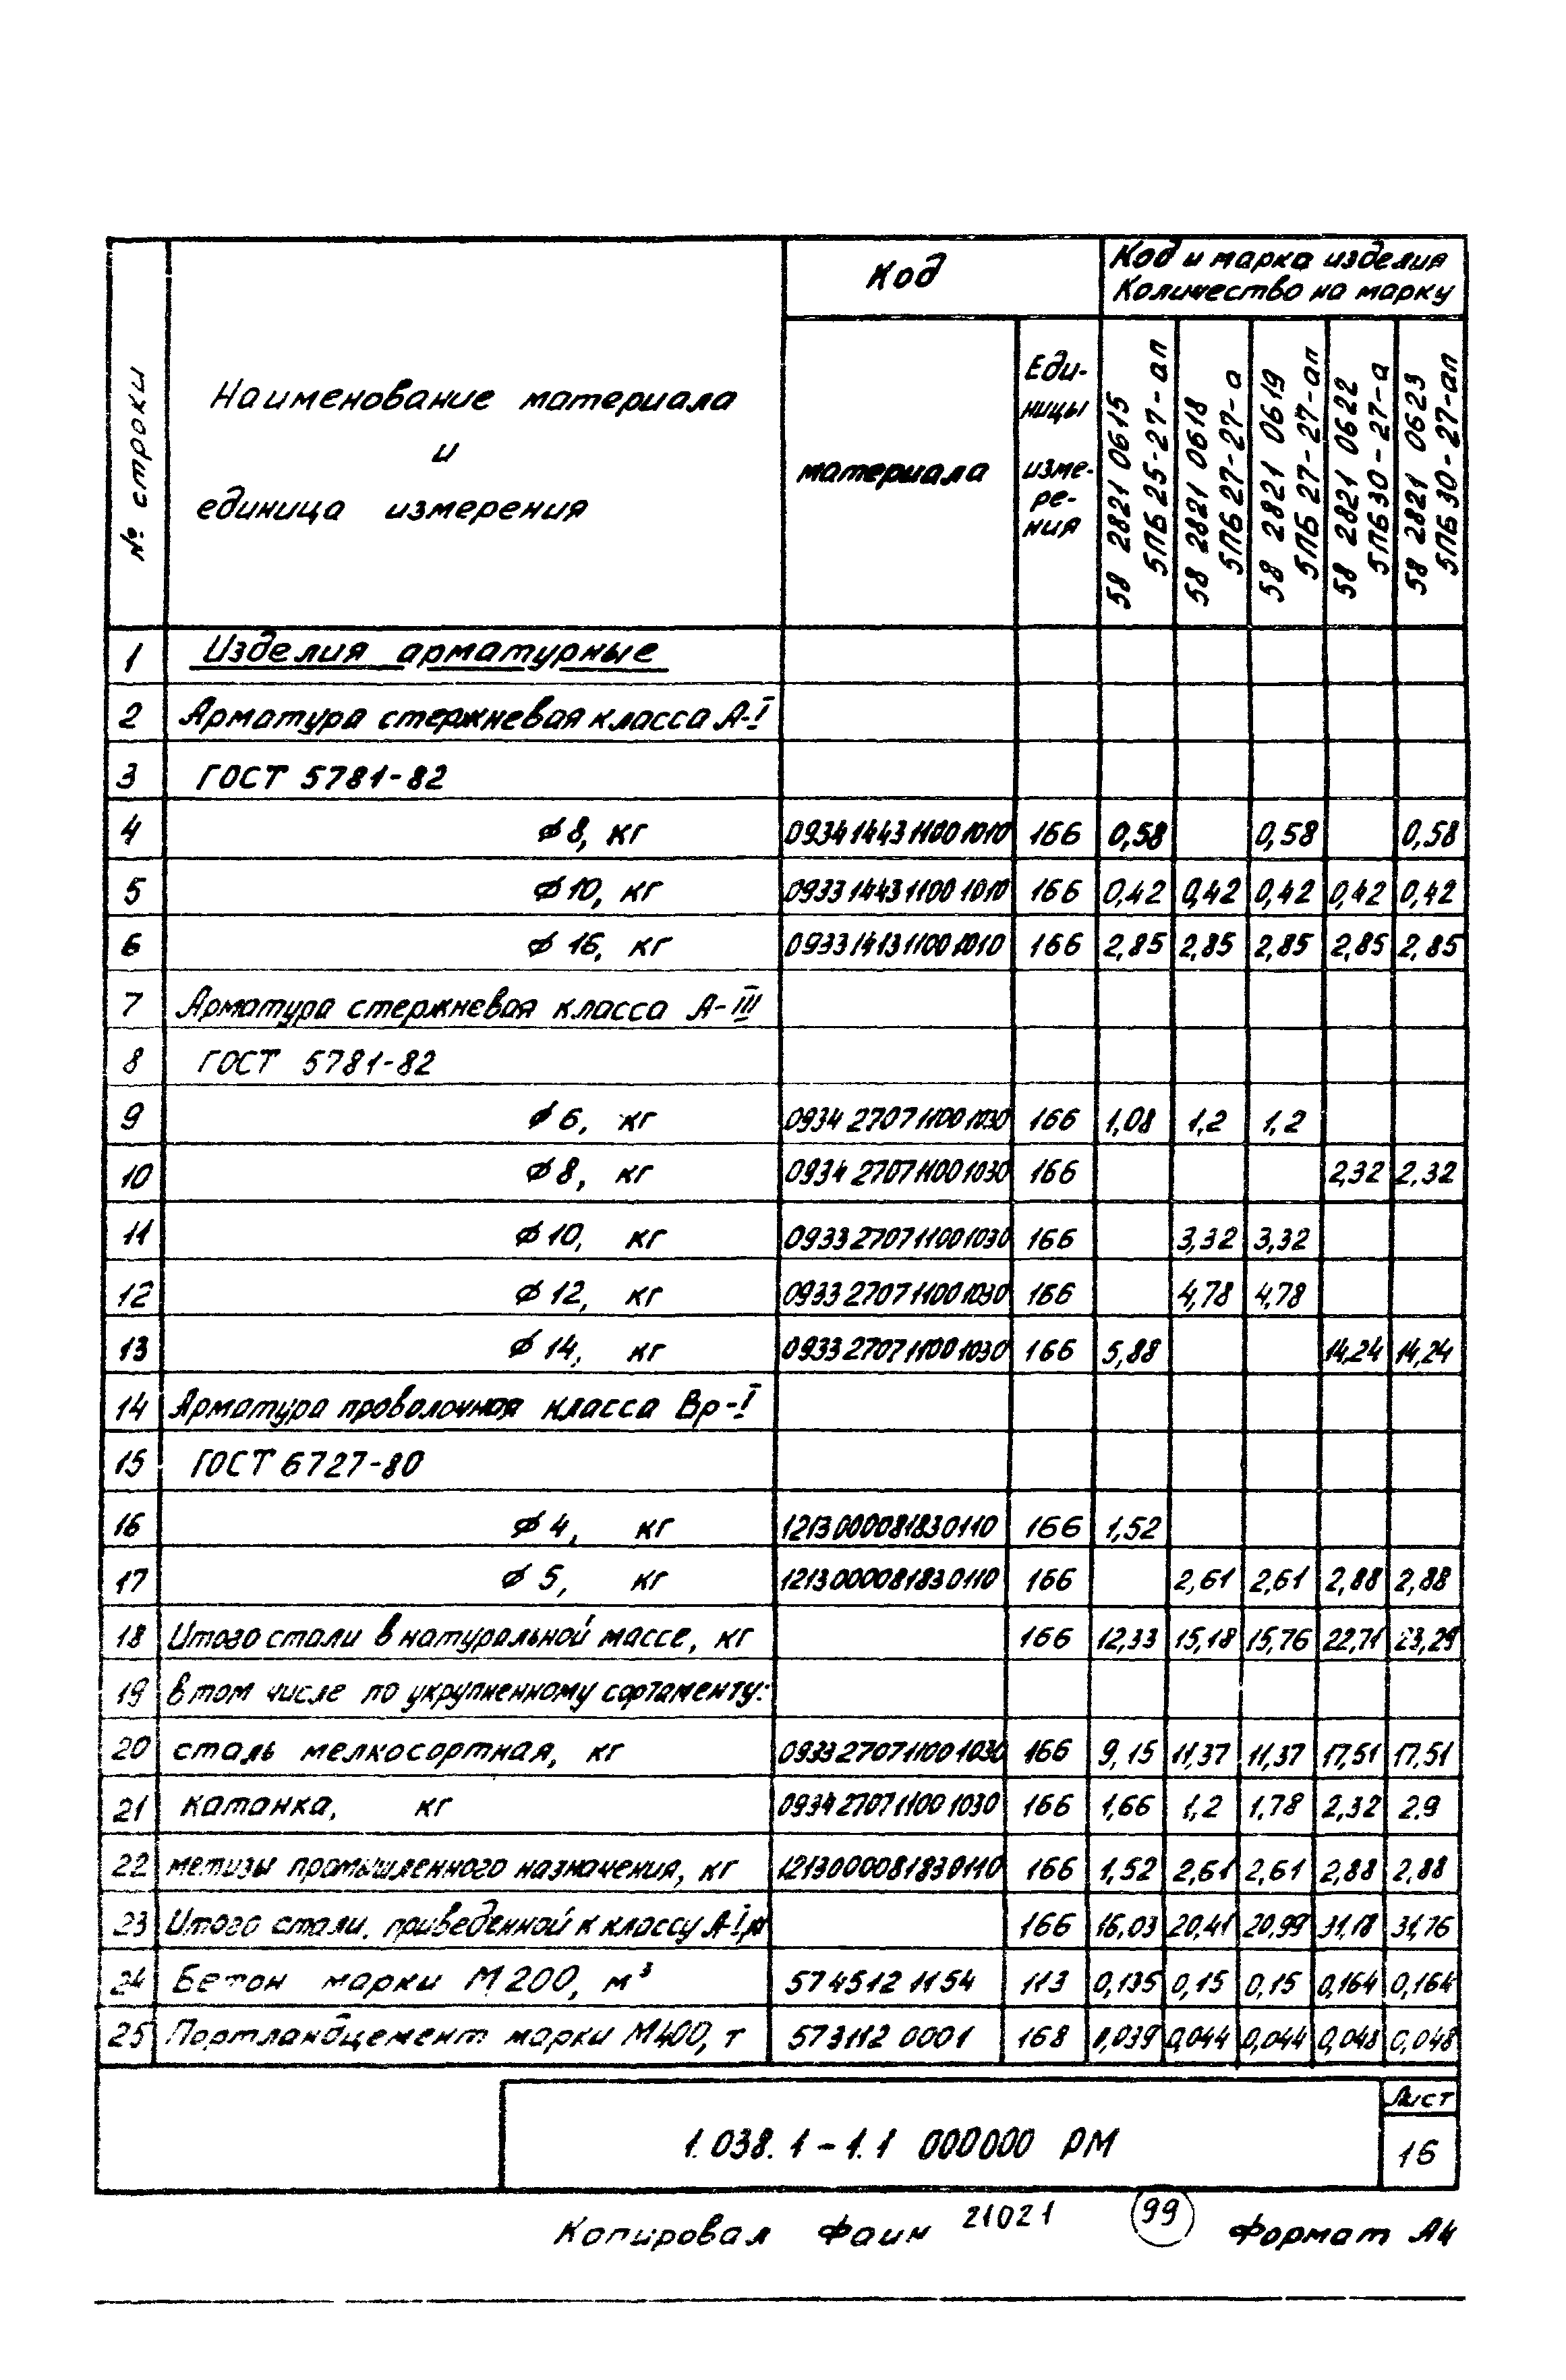 № строки
Наименование материала
и
единица измерения
Код
материала
Еди-
ницы
изме-
ре-
ния
Код и марка изделия
Количество на марку
58 2821 0615
5ПБ 25-27-ап
58 2821 0618
5ПБ 27-27-а
58 2821 0619
5ПБ 27-27-ап
58 2821 0622
5ПБ 30-27-а
58 2821 0623
5ПБ 30-27-ап
1 Изделия арматурные
2 Арматура стержневая класса А-I
3 ГОСТ 5781-82
4 ø 8, кг 0934144311001010 166 0,58 0,58 0,58
5 ø 10, кг 0933144311001010 166 0,42 0,42 0,42 0,42 0,42
6 ø 16, кг 0933141311001010 166 2,85 2,85 2,85 2,85 2,85
7 Арматура стержневая класса А-III
8 ГОСТ 5781-82
9 ø 6, кг 0934270711001030 166 1,08 1,2 1,2
10 ø 8, кг 0934270711001030 166 2,32 2,32
11 ø 10, кг 0933270711001030 166 3,32 3,32
12 ø 12, кг 0933270711001030 166 4,78 4,78
13 ø 14, кг 0933270711001030 166 5,88 14,24 14,24
14 Арматура проволочная класса Вр-I
15 ГОСТ 6727-80
16 ø 4, кг 1213000081830110 166 1,52
17 ø 5, кг 1213000081830110 166 2,61 2,61 2,88 2,88
18 Итого стали в натуральной массе, кг 166 12,33 15,18 15,76 22,71 23,29
19 в том числе по укрупненному сортаменту:
20 сталь мелкосортная, кг 0933270711001030 166 9,15 11,37 11,37 17,51 17,51
21 катанка, кг 0934270711001030 166 1,66 1,2 1,78 2,32 2,9
22 метизы промышленного назначения, кг 1213000081830110 166 1,52 2,61 2,61 2,88 2,88
23 Итого стали, приведенной к классу А-I, 166 16,03 20,41 20,99 31,18 31,76
24 Бетон марки М200, м³ 574512 1154 113 0,135 0,15 0,15 0,164 0,164
25 Портландцемент марки М400, т 573112 0001 168 0,039 0,044 0,044 0,048 0,048
1.038.1-1.1 000000 РМ
Лист
16
Копировал Фаин 21021 99 Формат А4